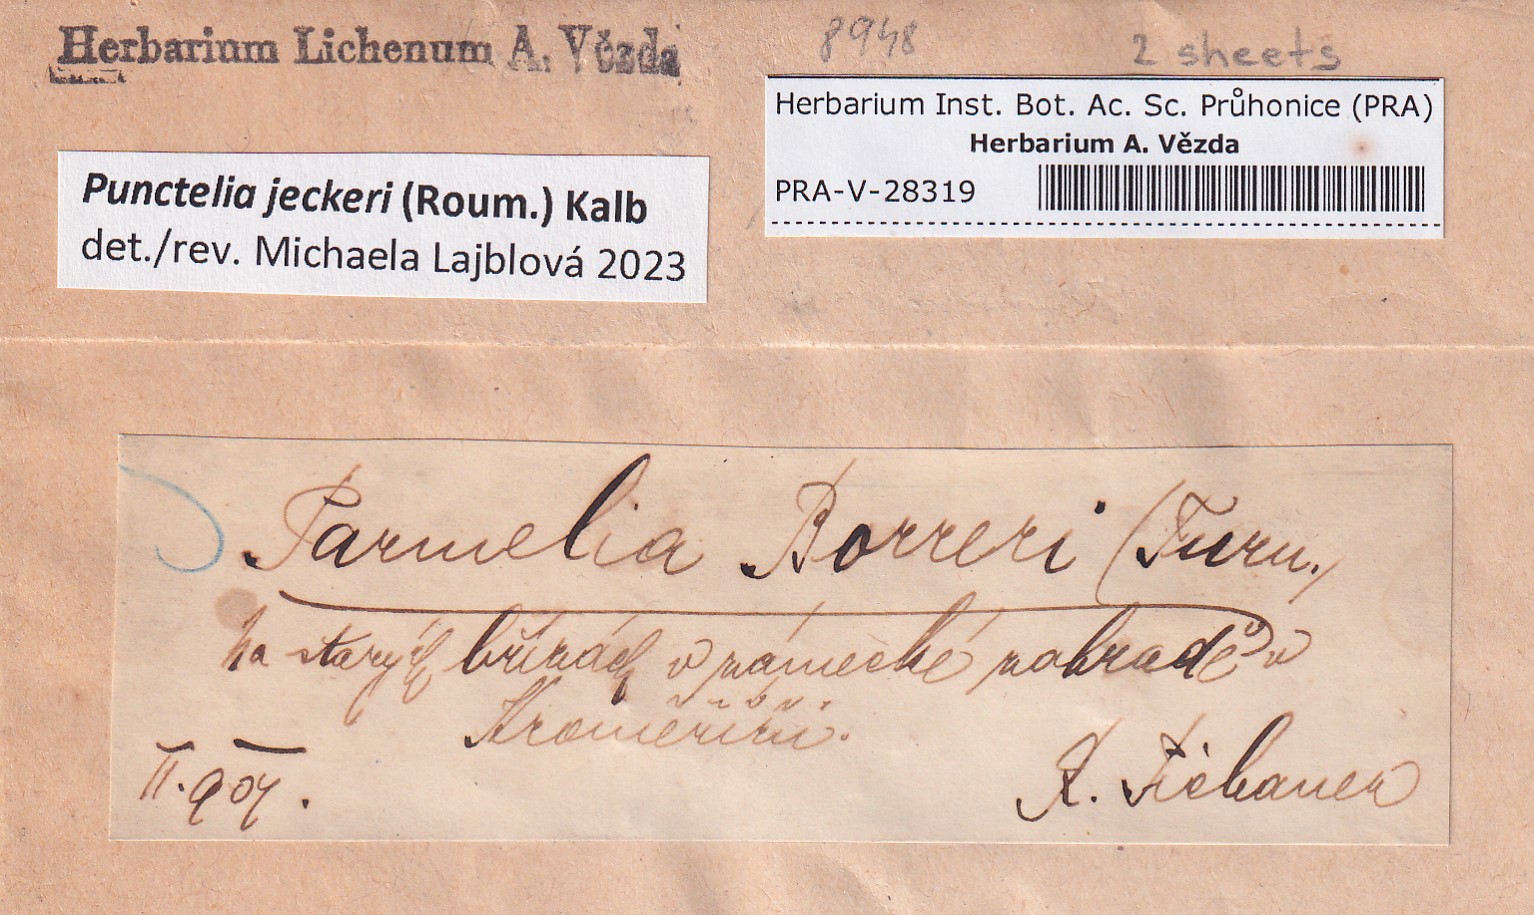 Herbarium Lichenum A. Vězda
8948
2 sheets
Herbarium Inst. Bot. Ac. Sc. Průhonice (PRA)
Herbarium A. Vězda
PRA-V-28319
Punctelia jeckeri (Roum.) Kalb
det./rev. Michaela Lajblová 2023
Parmelia Borreri (Turn.)
na starých břízách v zámecké zahradě v
Kroměříži.
II. 904.